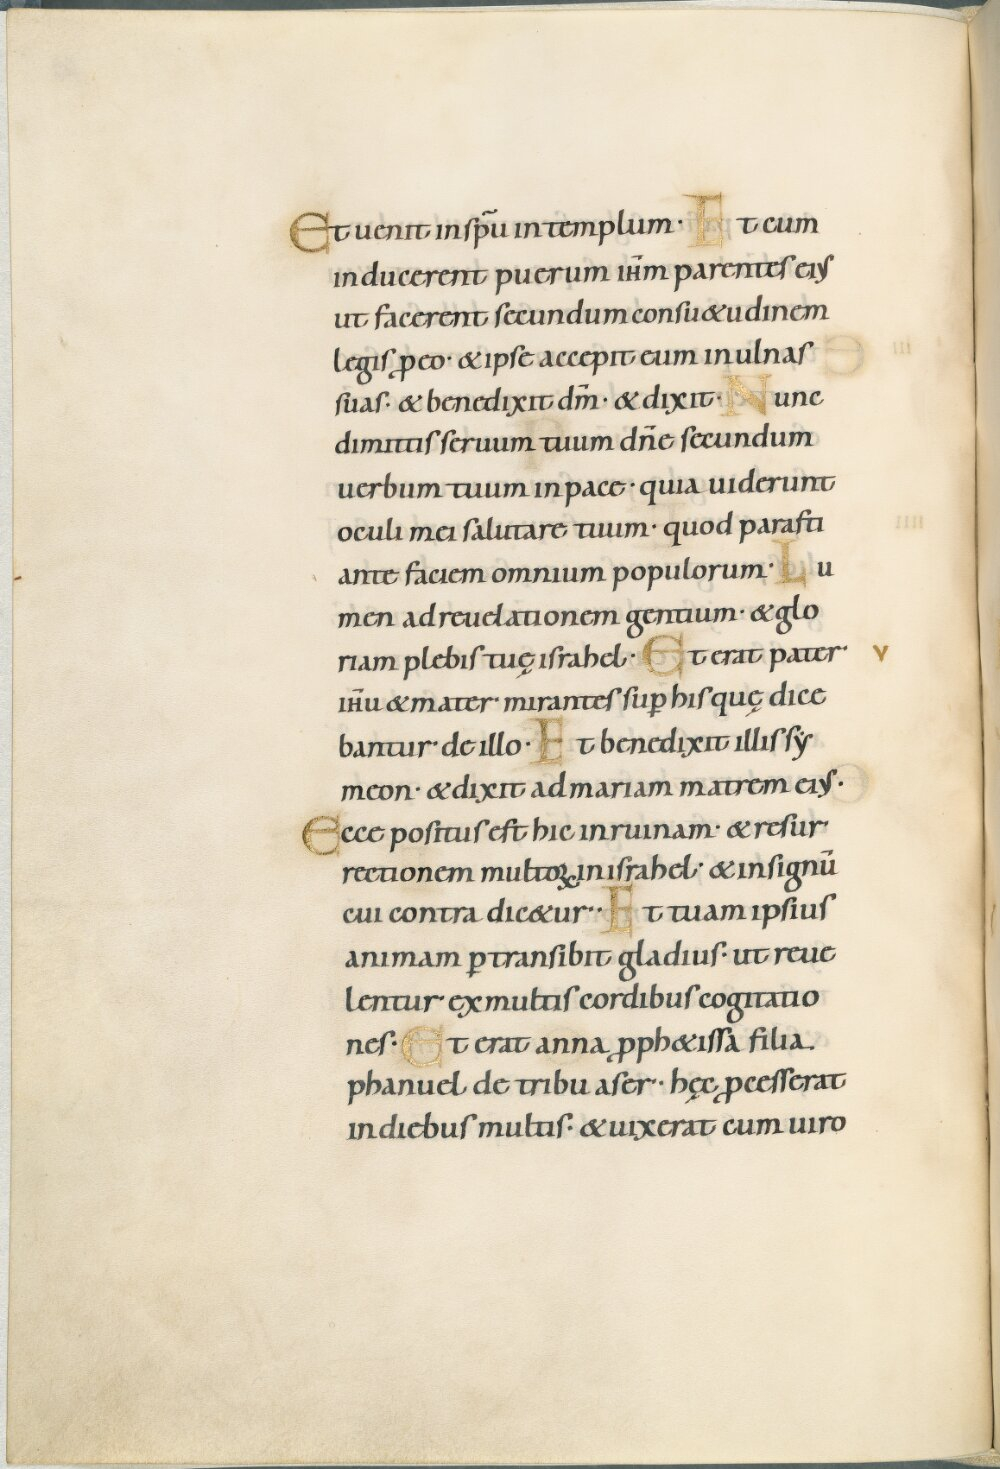 Et uenit in sp̄u in templum · Et cum
inducerent puerum ih̄m parentes eiꝰ
ut facerent secundum consu&udinem
legis ꝓ eo · & ipse accepit eum in ulnas
suas · & benedixit dm̄ · & dixit · Nunc
dimittis seruum tuum dn̄e secundum
uerbum tuum in pace · quia uiderunt
oculi mei salutare tuum · quod parasti
ante faciem omnium populorum · Lu
men ad reuelationem gentium · & glo
riam plebis tuę israhel · Et erat pater
v
ih̄u & mater · mirantes suꝑ his quę dice
bantur · de illo · Et benedixit illis sẏ
meon · & dixit ad mariam matrem eiꝰ ·
Ecce positus est hic in ruinam · & resur
rectionem multoꝝ in israhel · & in signū
cui contra dic&ur · · Et tuam ipsius
animam ꝑtransibit gladius · ut reue
lentur ex multis cordibus cogitatio
nes · Et erat anna ꝓph&issa filia .
phanuel de tribu aser · hęc ꝓcesserat
in diebus multis · & uixerat cum uiro